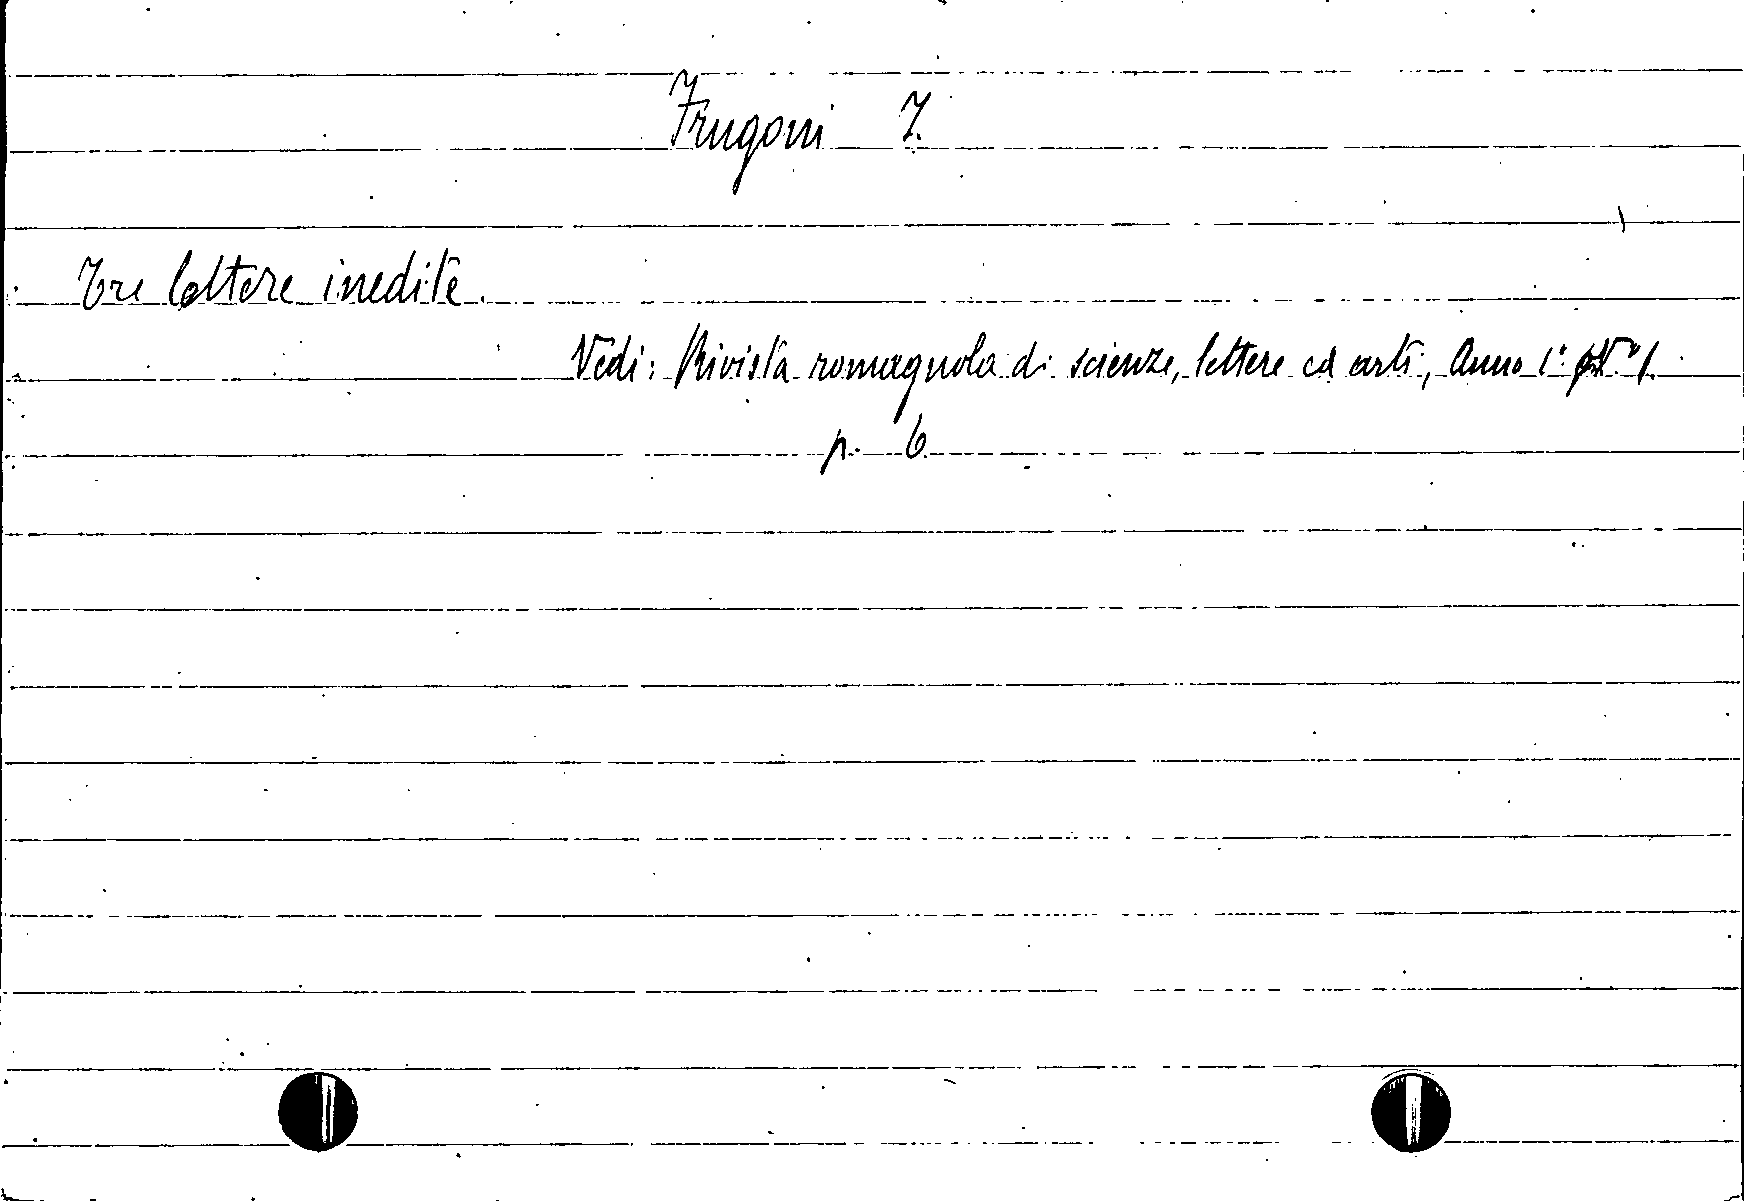 Frugoni I.
Tre lettere inedite.
Vedi: Rivista romagnola di scienze, lettere ed arti, Anno 1° N° 1.
p. 6